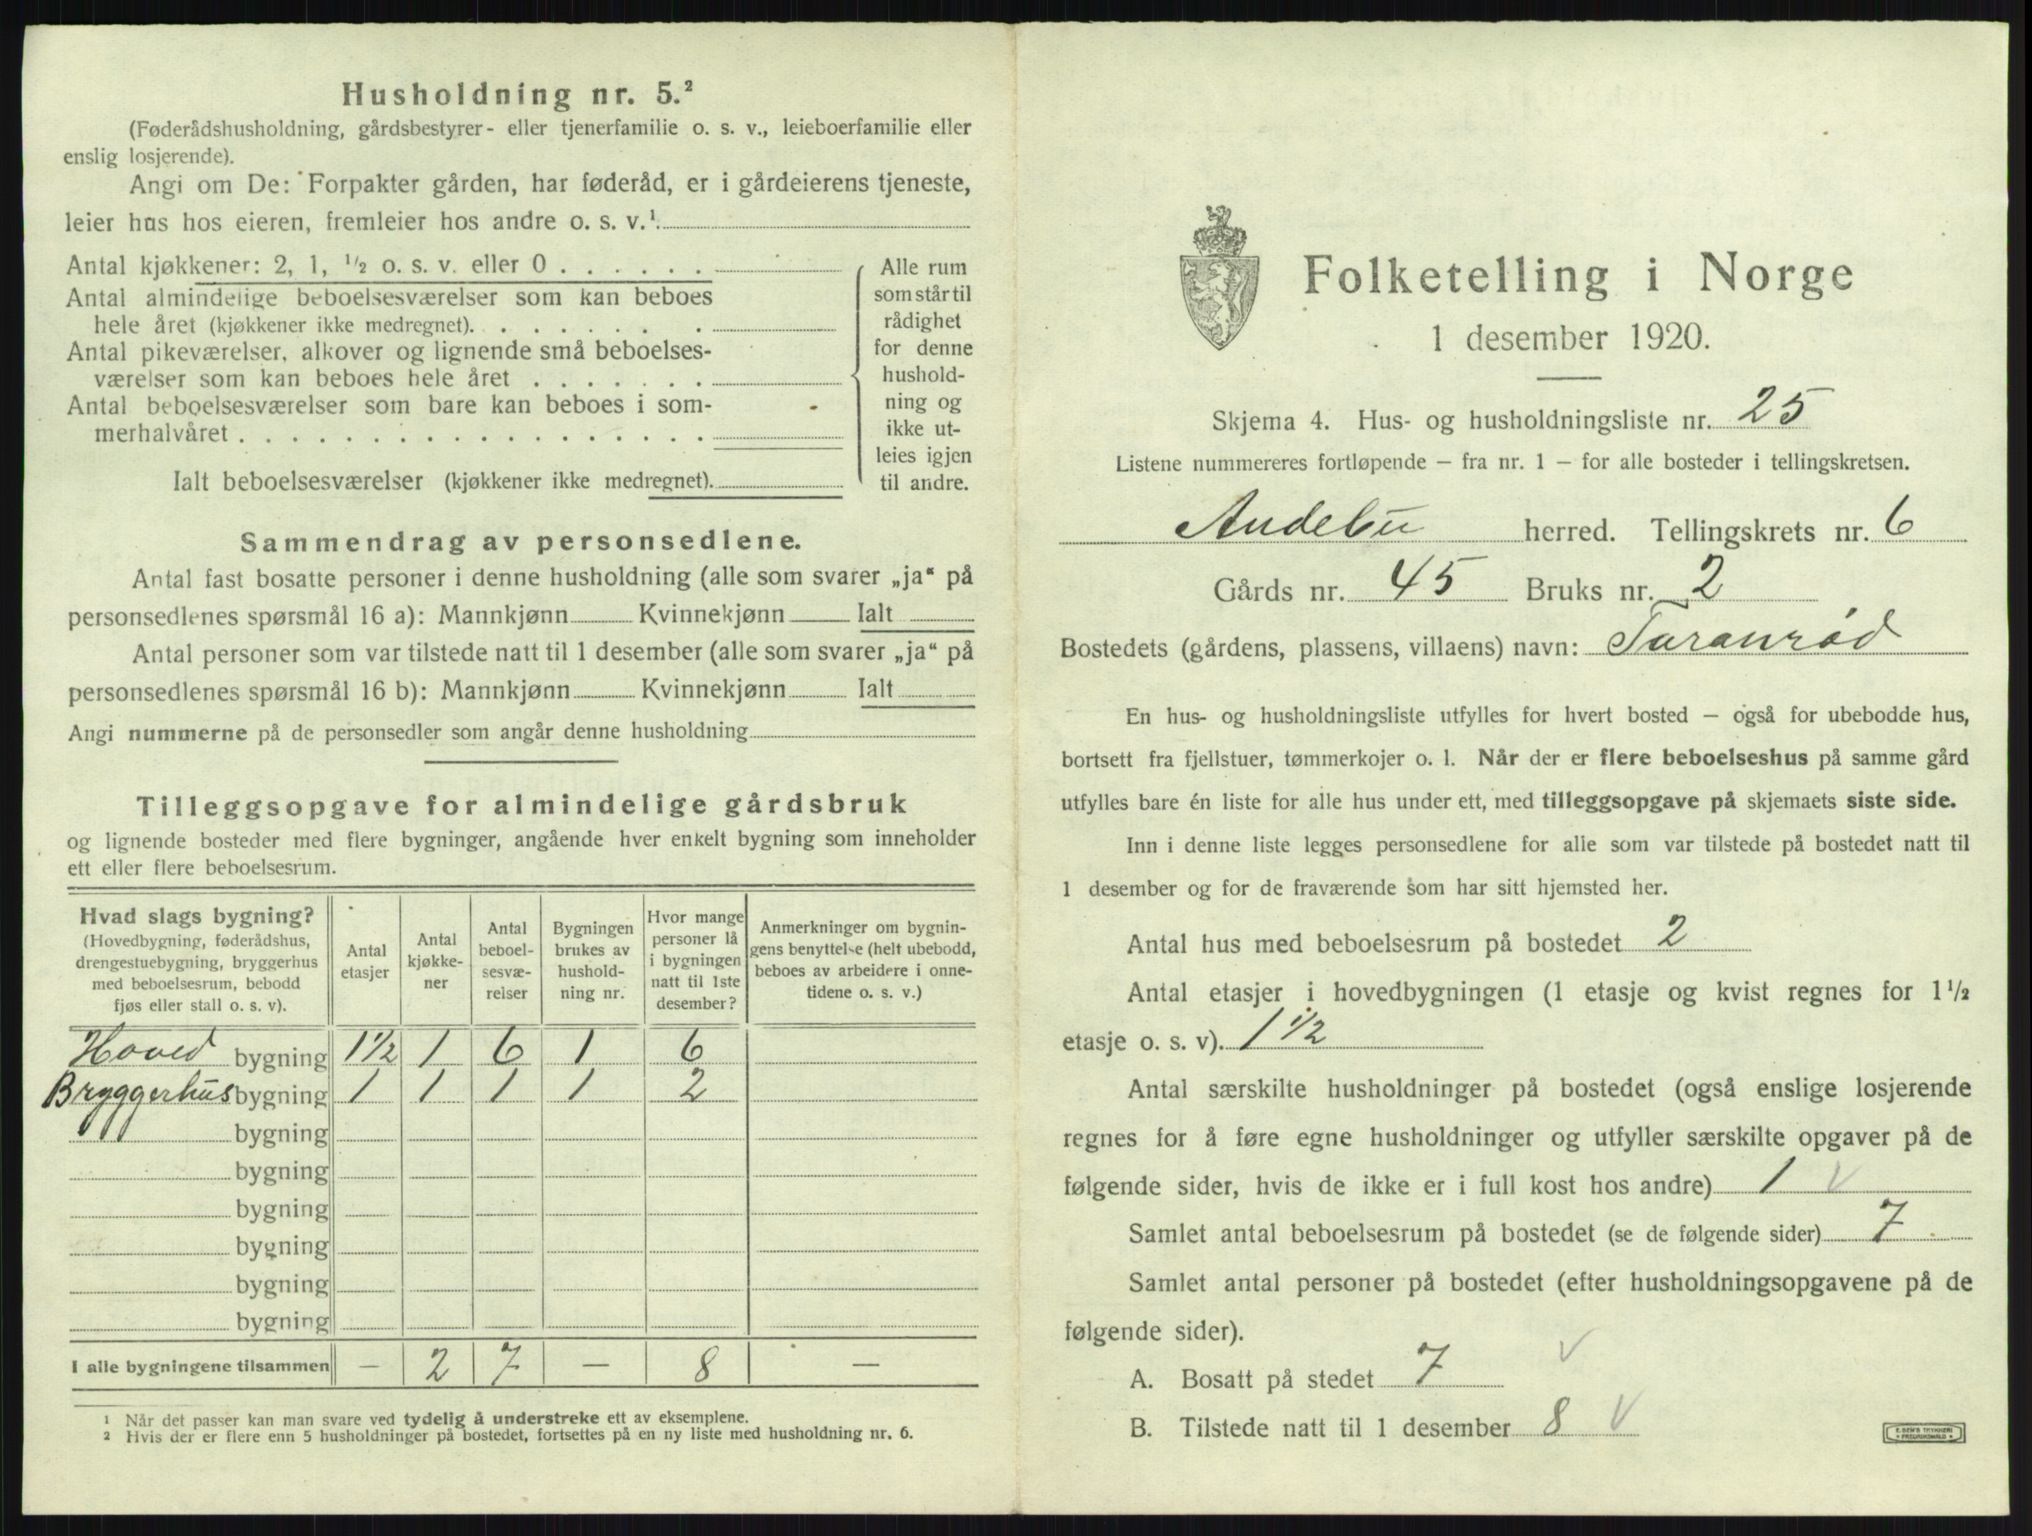 Husholdning nr. 5.²
(Føderådshusholdning, gårdsbestyrer- eller tjenerfamilie o. s. v., leieboerfamilie eller
enslig losjerende).
Angi om De: Forpakter gården, har føderåd, er i gårdeierens tjeneste,
leier hus hos eieren, fremleier hos andre o. s. v.¹
Antal kjøkkener: 2, 1, ½ o. s. v. eller 0
Antal almindelige beboelsesværelser som kan beboes
hele året (kjøkkener ikke medregnet).
Antal pikeværelser, alkover og lignende små beboelses-
værelser som kan beboes hele året
Antal beboelsesværelser som bare kan beboes i som-
merhalvåret
Ialt beboelsesværelser (kjøkkener ikke medregnet).
Alle rum
som står til
rådighet
for denne
hushold-
ning og
ikke ut-
leies igjen
til andre.
Sammendrag av personsedlene.
Antal fast bosatte personer i denne husholdning (alle som svarer „ja“ på
personsedlenes spørsmål 16 a): Mannkjønn Kvinnekjønn Ialt
Antal personer som var tilstede natt til 1 desember (alle som svarer „ja“ på
personsedlenes spørsmål 16 b): Mannkjønn Kvinnekjønn Ialt
Angi nummerne på de personsedler som angår denne husholdning
Tilleggsopgave for almindelige gårdsbruk
og lignende bosteder med flere bygninger, angående hver enkelt bygning som inneholder
ett eller flere beboelsesrum.
Hvad slags bygning?
(Hovedbygning, føderådshus,
drengestuebygning, bryggerhus
med beboelsesrum, bebodd
fjøs eller stall o. s. v).
Antal
etasjer
Antal
kjøkke-
ner
Antal
beboel-
sesvæ-
relser
Bygningen
brukes av
hushold-
ning nr.
Hvor mange
personer lå
i bygningen
natt til 1ste
desember?
Anmerkninger om bygnin-
gens benyttelse (helt ubebodd,
beboes av arbeidere i onne-
tidene o. s. v.)
Hoved bygning 1½ 1 6 1 6
Bryggerhus bygning 1 1 1 1 2
bygning
bygning
bygning
bygning
bygning
bygning
I alle bygningene tilsammen — 2 7 — 8 —
1 Når det passer kan man svare ved tydelig å understreke ett av eksemplene.
2 Hvis der er flere enn 5 husholdninger på bostedet, fortsettes på en ny liste med husholdning nr. 6.
Folketelling i Norge
1 desember 1920.
Skjema 4. Hus- og husholdningsliste nr. 25
Listene nummereres fortløpende — fra nr. 1 — for alle bosteder i tellingskretsen.
Andebu herred. Tellingskrets nr. 6
Gårds nr. 45 Bruks nr. 2
Bostedets (gårdens, plassens, villaens) navn: Taranrød
En hus- og husholdningsliste utfylles for hvert bosted — også for ubebodde hus,
bortsett fra fjellstuer, tømmerkojer o. l. Når der er flere beboelseshus på samme gård
utfylles bare én liste for alle hus under ett, med tilleggsopgave på skjemaets siste side.
Inn i denne liste legges personsedlene for alle som var tilstede på bostedet natt til
1 desember og for de fraværende som har sitt hjemsted her.
Antal hus med beboelsesrum på bostedet 2
Antal etasjer i hovedbygningen (1 etasje og kvist regnes for 1½
etasje o. s. v). 1½
Antal særskilte husholdninger på bostedet (også enslige losjerende
regnes for å føre egne husholdninger og utfyller særskilte opgaver på de
følgende sider, hvis de ikke er i full kost hos andre) 1 ✓
Samlet antal beboelsesrum på bostedet (se de følgende sider) 7
Samlet antal personer på bostedet (efter husholdningsopgavene på de
følgende sider).
A. Bosatt på stedet 7 ✓
B. Tilstede natt til 1 desember 8 ✓